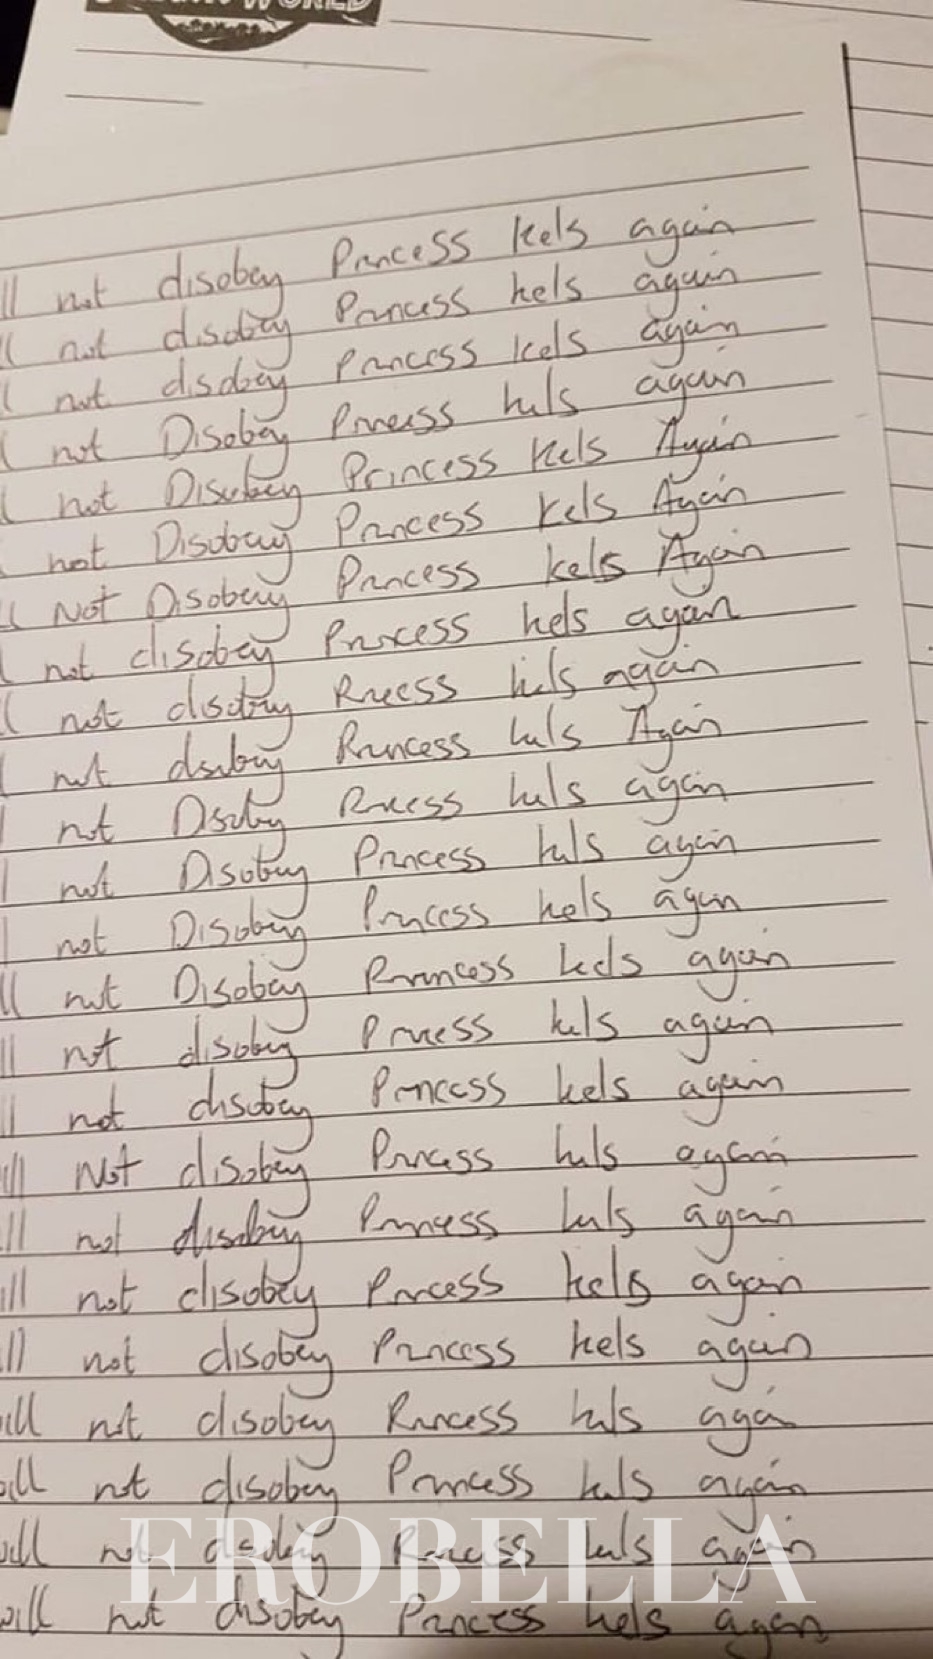 WORLD
ll not disobey Princess kels again
ll not disobey Princess kels again
l not disobey Princess kels again
l not Disobey Princess kels again
l not Disobey Princess kels Again
not Disobey Princess kels Again
ll NOT Disobey Princess kels Again
l not disobey Princess kels again
l not disobey Princess kels again
l not disobey Princess kels Again
l not Disobey Princess kels again
l not Disobey Princess kels again
l not Disobey Princess kels again
ll not Disobey Princess kels again
ll not disobey Princess kels again
ll not disobey Princess kels again
ill Not disobey Princess kels again
ill not disobey Princess kels again
ill not disobey Princess kels again
ill not disobey Princess kels again
will not disobey Princess kels again
will not disobey Princess kels again
will not disobey Princess kels again
will not disobey Princess kels again
EROBELLA